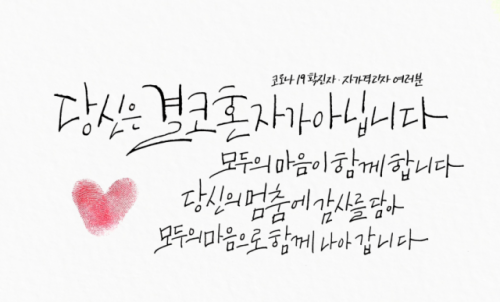 코로나19 확진자·자가격리자 여러분
당신은 결코 혼자가 아닙니다
모두의 마음이 함께 합니다
당신의 멈춤에 감사를 담아
모두의 마음으로 함께 나아갑니다